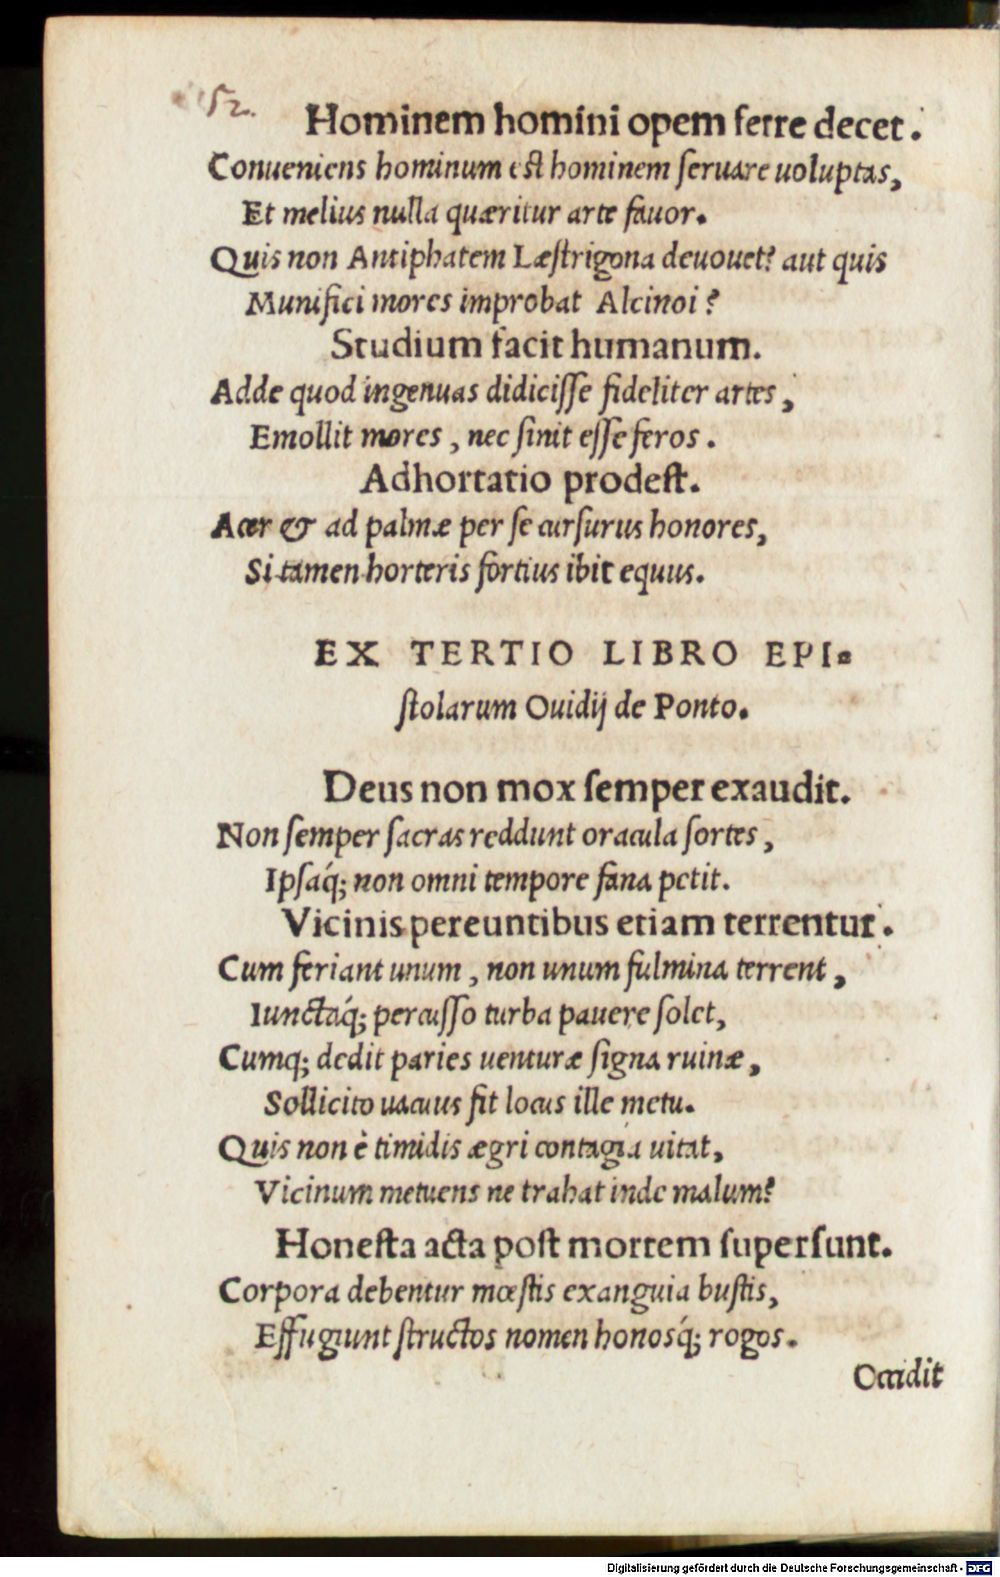 52.
Hominem homini opem ferre decet.
Conueniens hominum est hominem ſeruare uoluptas,
Et melius nulla quæritur arte fauor.
Quis non Antiphatem Læſtrigona deuouet? aut quis
Munifici mores improbat Alcinoi?
Studium facit humanum.
Adde quod ingenuas didiciſſe fideliter artes,
Emollit mores, nec ſinit eſſe feros.
Adhortatio prodeſt.
Acer & ad palmæ per ſe curſurus honores,
Si tamen horteris fortius ibit equus.
EX TERTIO LIBRO EPI-
ſtolarum Ouidij de Ponto.
Deus non mox ſemper exaudit.
Non ſemper ſacras reddunt oracula ſortes,
Ipſaq́; non omni tempore fana petit.
Vicinis pereuntibus etiam terrentur.
Cum feriant unum, non unum fulmina terrent,
Iunctaq́; percuſſo turba pauere ſolet,
Cumq; dedit paries uenturæ ſigna ruinæ,
Sollicito uacuus fit locus ille metu.
Quis non è timidis ægri contagia uitat,
Vicinum metuens ne trahat inde malum?
Honeſta acta poſt mortem ſuperſunt.
Corpora debentur mœſtis exanguia buſtis,
Effugiunt ſtructos nomen honosq́; rogos.
Occidit
Digitalisierung gefördert durch die Deutsche Forschungsgemeinschaft - DFG